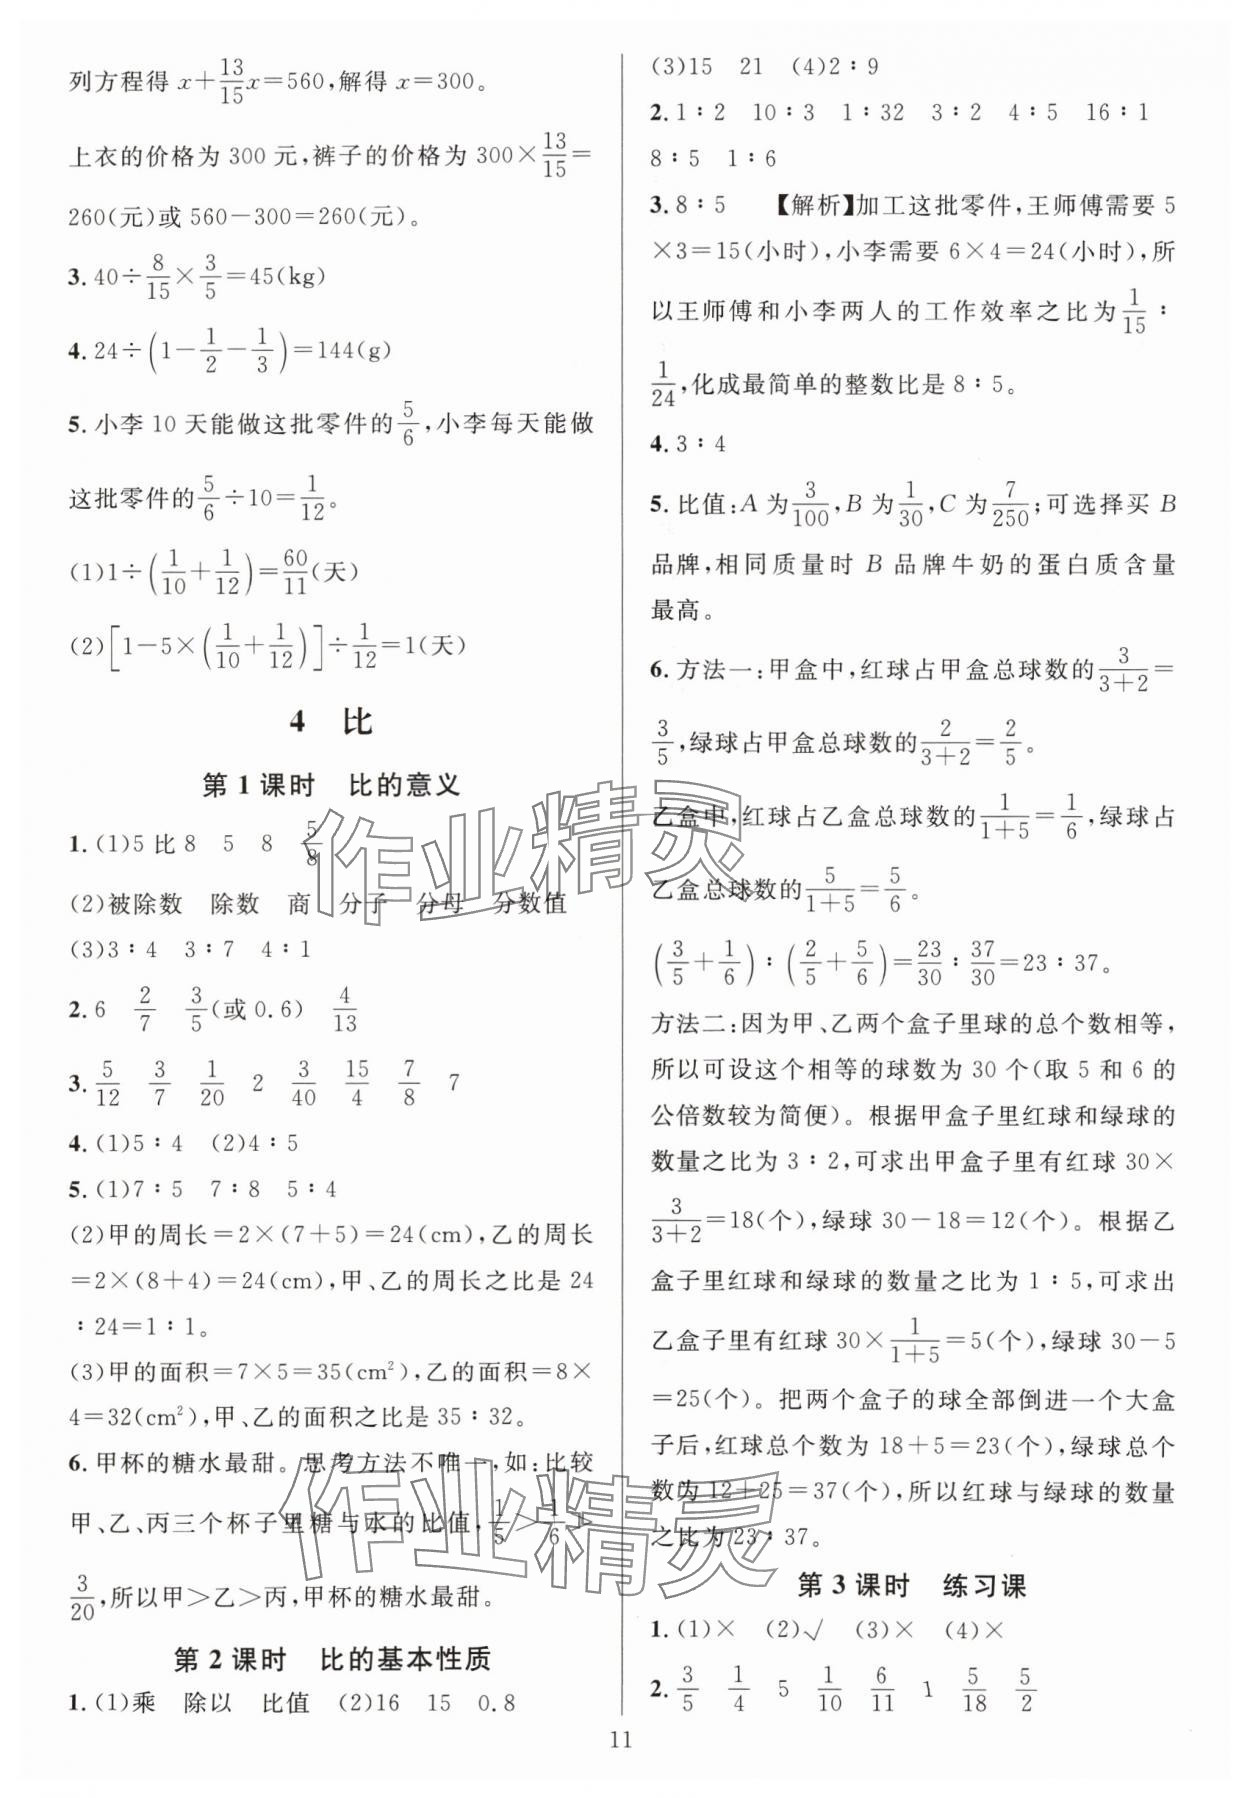 列方程得 x+13/15x=560,解得 x=300。
上衣的价格为 300 元,裤子的价格为 300×13/15=
260(元)或 560-300=260(元)。
3. 40÷8/15×3/5=45(kg)
4. 24÷(1-1/2-1/3)=144(g)
5. 小李 10 天能做这批零件的5/6,小李每天能做
这批零件的5/6÷10=1/12。
(1)1÷(1/10+1/12)=60/11(天)
(2)[1-5×(1/10+1/12)]÷1/12=1(天)
4 比
第 1 课时 比的意义
1. (1)5 比 8 5 8 5/8
(2)被除数 除数 商 分子 分母 分数值
(3)3∶4 3∶7 4∶1
2. 6 2/7 3/5(或 0.6) 4/13
3. 5/12 3/7 1/20 2 3/40 15/4 7/8 7
4. (1)5∶4 (2)4∶5
5. (1)7∶5 7∶8 5∶4
(2)甲的周长=2×(7+5)=24(cm),乙的周长
=2×(8+4)=24(cm),甲、乙的周长之比是 24
∶24=1∶1。
(3)甲的面积=7×5=35(cm²),乙的面积=8×
4=32(cm²),甲、乙的面积之比是 35∶32。
6. 甲杯的糖水最甜。思考方法不唯一,如:比较
甲、乙、丙三个杯子里糖与水的比值,1/5>1/6>
3/20,所以甲>乙>丙,甲杯的糖水最甜。
第 2 课时 比的基本性质
1. (1)乘 除以 比值 (2)16 15 0.8
(3)15 21 (4)2∶9
2. 1∶2 10∶3 1∶32 3∶2 4∶5 16∶1
8∶5 1∶6
3. 8∶5 【解析】加工这批零件,王师傅需要 5
×3=15(小时),小李需要 6×4=24(小时),所
以王师傅和小李两人的工作效率之比为1/15∶
1/24,化成最简单的整数比是 8∶5。
4. 3∶4
5. 比值:A 为3/100,B 为1/30,C 为7/250;可选择买 B
品牌,相同质量时 B 品牌牛奶的蛋白质含量
最高。
6. 方法一:甲盒中,红球占甲盒总球数的3/(3+2)=
3/5,绿球占甲盒总球数的2/(3+2)=2/5。
乙盒中,红球占乙盒总球数的1/(1+5)=1/6,绿球占
乙盒总球数的5/(1+5)=5/6。
(3/5+1/6)∶(2/5+5/6)=23/30∶37/30=23∶37。
方法二:因为甲、乙两个盒子里球的总个数相等,
所以可设这个相等的球数为 30 个(取 5 和 6 的
公倍数较为简便)。根据甲盒子里红球和绿球的
数量之比为 3∶2,可求出甲盒子里有红球 30×
3/(3+2)=18(个),绿球 30-18=12(个)。根据乙
盒子里红球和绿球的数量之比为 1∶5,可求出
乙盒子里有红球 30×1/(1+5)=5(个),绿球 30-5
=25(个)。把两个盒子的球全部倒进一个大盒
子后,红球总个数为 18+5=23(个),绿球总个
数为 12+25=37(个),所以红球与绿球的数量
之比为 23∶37。
第 3 课时 练习课
1. (1)× (2)√ (3)× (4)×
2. 3/5 1/4 5 1/10 6/11 1 5/18 5/2
11
作业精灵
作业精灵